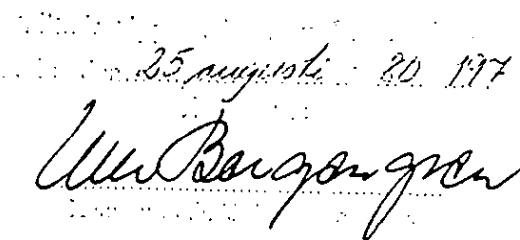 25 augusti 80 197
Ulla Bergengren